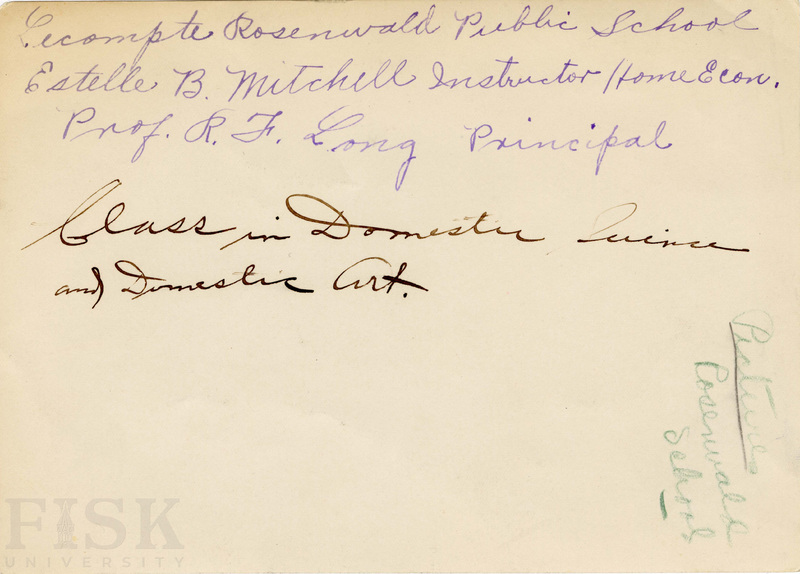 Lecompte Rosenwald Public School
Estelle B. Mitchell Instructor/Home Econ.
Prof. R. F. Long Principal
Class in Domestic Science
and Domestic Art.
Pictures
Rosenwald
School
FISK
UNIVERSITY